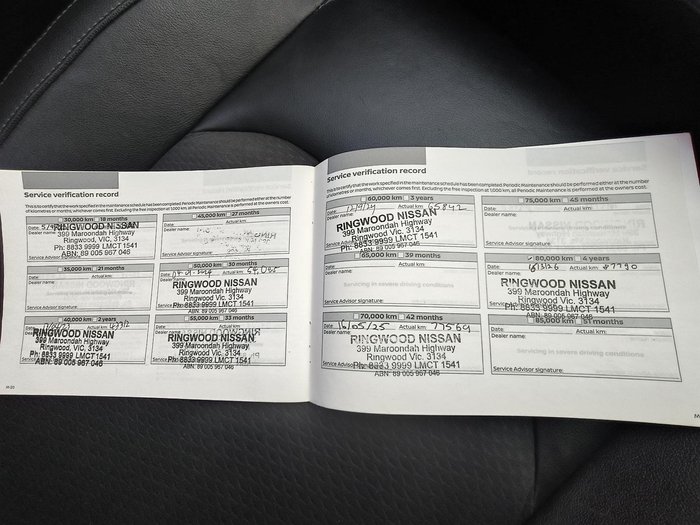 Service verification record
This is to certify that the work specified in the maintenance schedule has been completed. Periodic Maintenance should be performed either at the number
of kilometres or months, whichever comes first. Excluding the free inspection at 1,000 km, all Periodic Maintenance is performed at the owners cost.
30,000 km 18 months
Date:
Dealer name:
RINGWOOD NISSAN
399 Maroondah Highway
Ringwood, VIC, 3134
Ph: 8833 9999 LMCT 1541
ABN: 89 005 967 046
45,000 km 27 months
Date: Actual km:
Dealer name:
Service Advisor signature:
35,000 km 21 months
Date: Actual km:
Dealer name:
Service Advisor signature:
50,000 km 30 months
RINGWOOD NISSAN
399 Maroondah Highway
Ringwood Vic. 3134
Ph: 8833 9999 LMCT 1541
ABN: 89 005 967 046
40,000 km 2 years
RINGWOOD NISSAN
399 Maroondah Highway
Ringwood, VIC, 3134
Ph: 8833 9999 LMCT 1541
ABN: 89 005 967 046
55,000 km 33 months
RINGWOOD NISSAN
399 Maroondah Highway
Ringwood Vic. 3134
Ph: 8833 9999 LMCT 1541
ABN: 89 005 967 046
M-20
Service verification record
This is to certify that the work specified in the maintenance schedule has been completed. Periodic Maintenance should be performed either at the number
of kilometres or months, whichever comes first. Excluding the free inspection at 1,000 km, all Periodic Maintenance is performed at the owners cost.
60,000 km 3 years
Date: 12/9/24 Actual km: 65842
RINGWOOD NISSAN
399 Maroondah Highway
Ringwood, VIC, 3134
Ph: 8833 9999 LMCT 1541
ABN: 89 005 967 046
75,000 km 45 months
Date: Actual km:
Dealer name:
Service Advisor signature:
65,000 km 39 months
Date: Actual km:
Dealer name:
Servicing in severe driving conditions
Service Advisor signature:
80,000 km 4 years
Actual km: 87790
RINGWOOD NISSAN
399 Maroondah Highway
Ringwood Vic. 3134
Ph: 8833 9999 LMCT 1541
ABN: 89 005 967 046
70,000 km 42 months
Date: 16/05/25 Actual km: 77564
Dealer name:
RINGWOOD NISSAN
399 Maroondah Highway
Ringwood Vic. 3134
Ph: 8833 9999 LMCT 1541
ABN: 89 005 967 046
85,000 km 51 months
Date: Actual km:
Dealer name:
Servicing in severe driving conditions
Service Advisor signature: